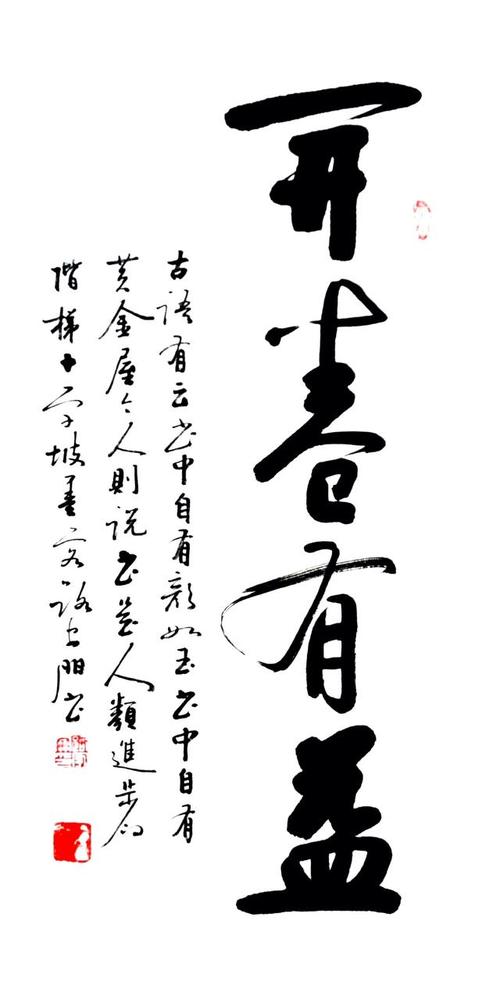 开卷有益
古語有云書中自有顏如玉書中自有
黄金屋今人則説書是人類進步的
階梯十字坡墨客路書